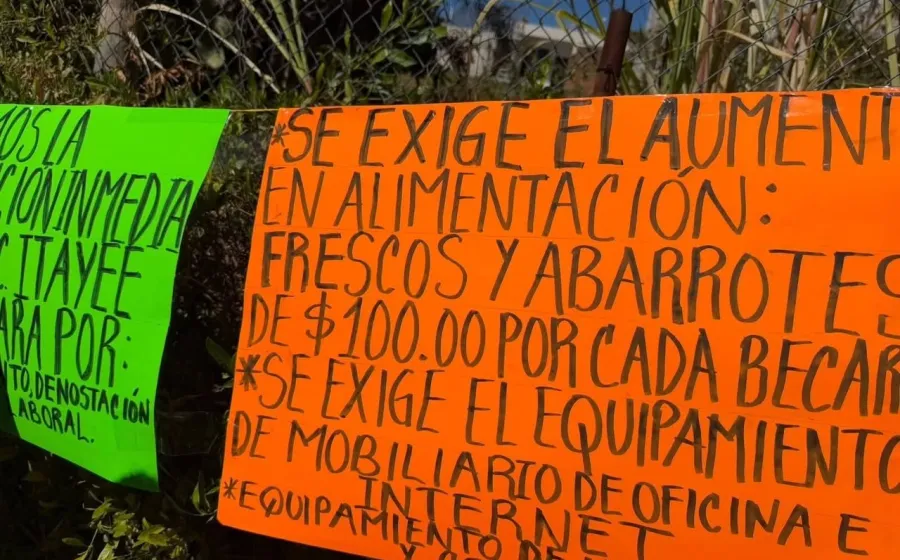 MOS LA
CIÓN INMEDIA
C. ITAYEE
ARA POR:
NTO, DENOSTACIÓN
LABORAL.
*SE EXIGE EL AUMENT
EN ALIMENTACIÓN:
FRESCOS Y ABARROTES
DE $100.00 POR CADA BECAR
*SE EXIGE EL EQUIPAMIENTO
DE MOBILIARIO DE OFICINA E
INTERNET
*EQUIPAMIENTO DE
Y